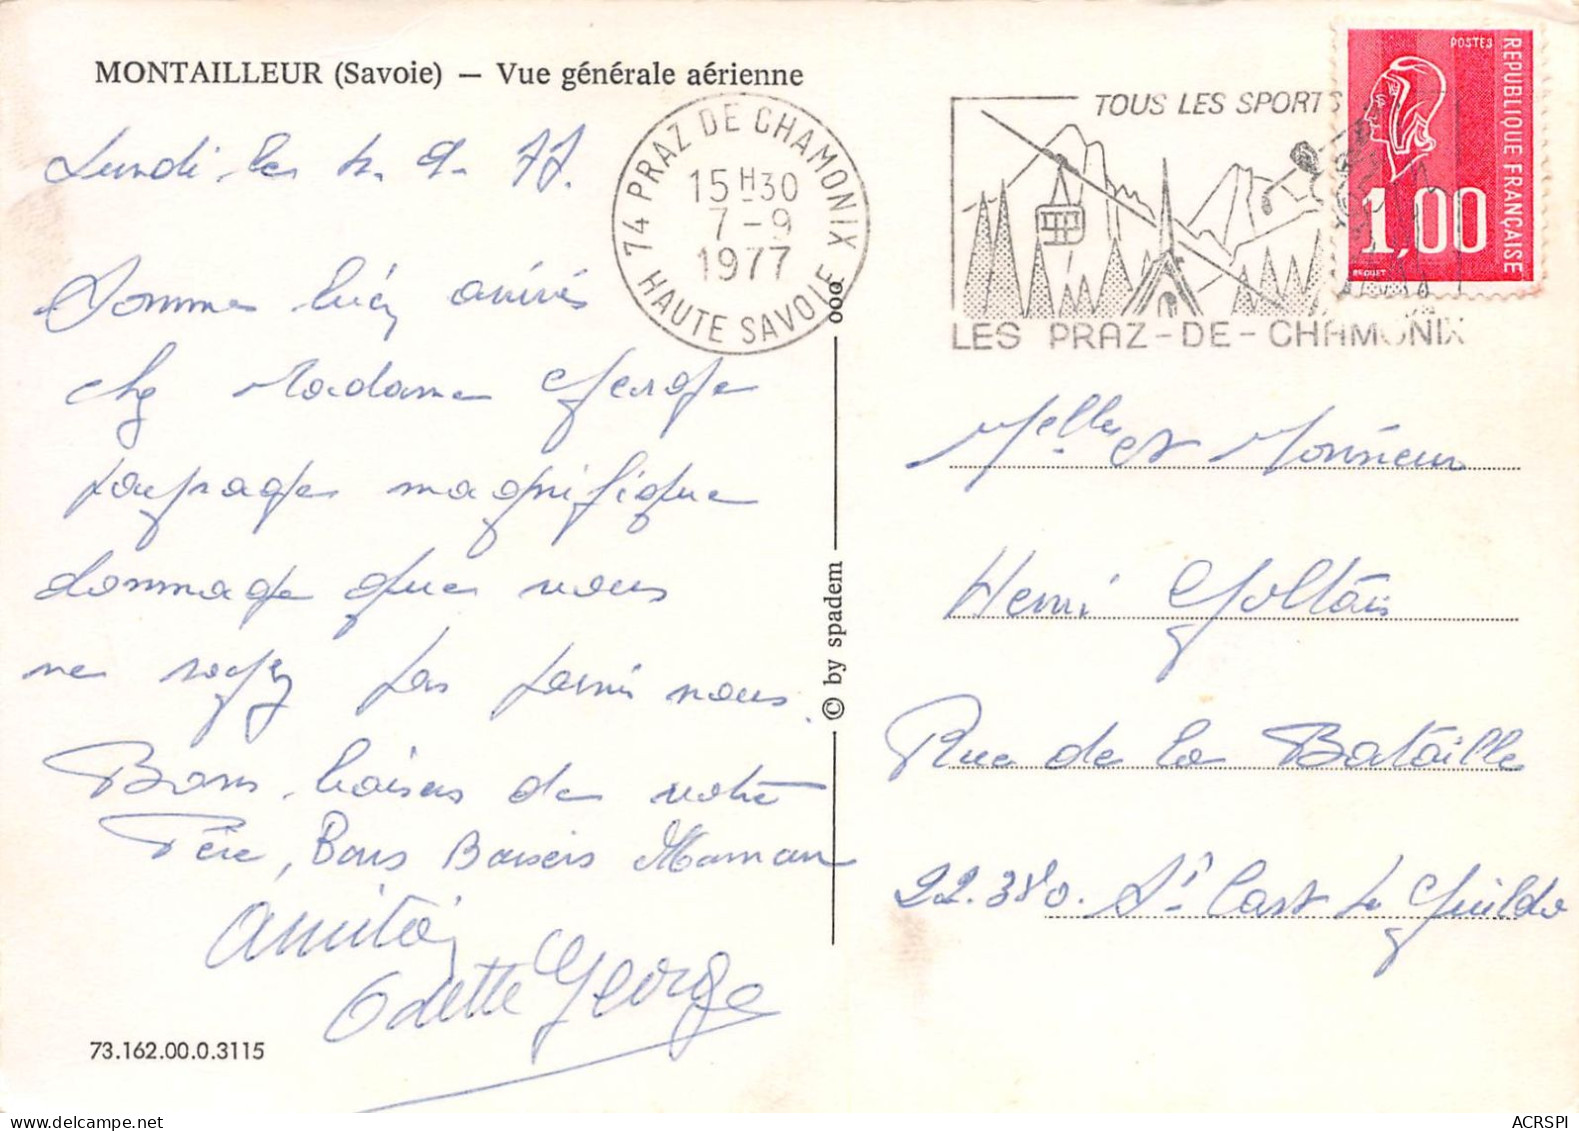 MONTAILLEUR (Savoie) — Vue générale aérienne
Lundi le 4. 9. 77.
Sommes bien arrivés
chez Madame George
paysages magnifique
dommage que vous
ne soyez pas parmi nous.
Bons baisers de votre
Père, Bons Baisers Maman
Amitiés
Odette George
73.162.00.0.3115
© by spadem
000
74 PRAZ DE CHAMONIX
15 H 30
7 - 9
1977
HAUTE SAVOIE
TOUS LES SPORTS
LES PRAZ-DE-CHAMONIX
POSTES
REPUBLIQUE FRANÇAISE
1,00
BEQUET
Melle et Monsieur
Henri
Rue de la Bataille
22.380. St Cast Le Guildo
ACRSPI